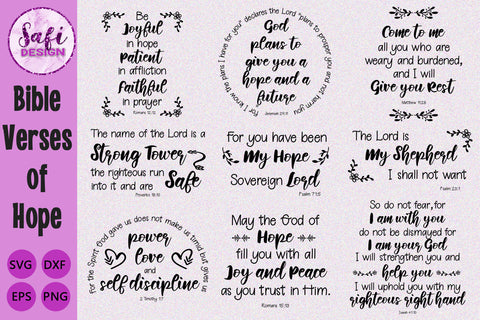 Safi
DESIGN
Bible
Verses
of
Hope
SVG DXF
EPS PNG
Be
Joyful
in hope
Patient
in affliction
Faithful
in prayer
Romans 12:12
For I know the plans I have for you" declares the Lord "plans to prosper you and not harm you
God
plans to
give you a
hope and a
future
Jeremiah 29:11
Come to me
all you who are
weary and burdened,
and I will
Give you Rest
Matthew 11:28
The name of the Lord is a
Strong Tower
the righteous run
into it and are Safe
Proverbs 18:10
For you have been
My Hope
Sovereign Lord
Psalm 71:5
The Lord is
My Shepherd
I shall not want
Psalm 23:1
For the Spirit God gave us does not make us timid but gives us
power
love
and
self discipline
2 Timothy 1:7
May the God of
Hope
fill you with all
Joy and Peace
as you trust in Him.
Romans 15:13
So do not fear, for
I am with you
do not be dismayed for
I am your God
I will strengthen you and
help you
I will uphold you with my
righteous right hand
Isaiah 41:10